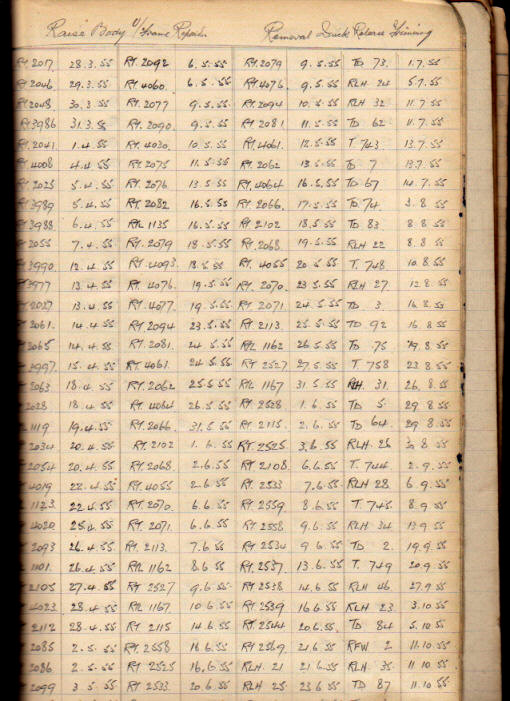 Raise Body O/ Frame Repairs Removal Quick Release Lining
RT. 2017 28.3.55 RT. 2092 6.5.55 RT. 2079 9.5.55 TD 73 1.7.55
RT 2046 29.3.55 RT. 4060 6.5.55 RT 4076 9.5.55 RLH 24 5.7.55
RT 2048 30.3.55 RT. 2077 9.5.55 RT 2094 10.5.55 RLH 32 11.7.55
RT 3986 31.3.55 RT. 2090 9.5.55 RT 2081 11.5.55 TD 62 11.7.55
RT. 2041 1.4.55 RT. 4030 10.5.55 RT. 4061 12.5.55 T. 743 13.7.55
RT 4008 4.4.55 RT 2075 11.5.55 RT 2062 13.5.55 T. 7 13.7.55
RT. 2025 5.4.55 RT. 2076 13.5.55 RT. 4064 16.5.55 TD. 67 14.7.55
3989 5.4.55 RT. 2082 16.5.55 RT. 2066 17.5.55 TD. 74 3.8.55
3988 6.4.55 RTL 1135 16.5.55 RT 2102 18.5.55 TD 83 8.8.55
2055 7.4.55 RT. 2079 18.5.55 RT. 2068 19.5.55 RLH 22 8.8.55
3990 12.4.55 RT. 4093 18.5.55 RT. 4055 20.5.55 T. 748 10.8.55
3977 13.4.55 RT. 4076 19.5.55 RT. 2070 23.5.55 RLH 27 12.8.55
2027 13.4.55 RT. 4077 19.5.55 RT. 2071 24.5.55 TD. 3 16.8.55
2061 14.4.55 RT. 2094 23.5.55 RT. 2113 25.5.55 TD. 92 16.8.55
2065 14.4.55 RT. 2081 24.5.55 RTL 1162 26.5.55 TD 75 19.8.55
3997 15.4.55 RT. 4061 24.5.55 RT 2527 27.5.55 T. 758 23.8.55
2063 18.4.55 RT. 2062 25.5.55 RTL 1167 31.5.55 RLH. 31 26.8.55
2028 18.4.55 RT. 4064 26.5.55 RT 2528 1.6.55 TD 5 29.8.55
1119 19.4.55 RT. 2066 31.5.55 RT. 2115 2.6.55 TD 64 29.8.55
2034 20.4.55 RT. 2102 1.6.55 RT. 2525 3.6.55 RLH. 25 30.8.55
2054 20.4.55 RT. 2068 2.6.55 RT 2108 6.6.55 T. 744 2.9.55
4019 22.4.55 RT. 4055 2.6.55 RT. 2533 7.6.55 RLH 28 6.9.55
1123 22.4.55 RT. 2070 6.6.55 RT. 2559 8.6.55 T. 745 8.9.55
4020 25.4.55 RT. 2071 6.6.55 RT. 2558 9.6.55 RLH 34 13.9.55
2093 26.4.55 RT. 2113 7.6.55 RT 2534 9.6.55 TD 2. 19.9.55
1101 26.4.55 RTL 1162 8.6.55 RT. 2537 13.6.55 T. 749 20.9.55
2105 27.4.55 RT 2527 9.6.55 RT. 2538 14.6.55 RLH 46 27.9.55
4023 28.4.55 RTL 1167 10.6.55 RT. 2539 16.6.55 RLH 23 3.10.55
2112 28.4.55 RT 2115 14.6.55 RT. 2544 20.6.55 TD 84 5.10.55
2085 2.5.55 RT 2558 16.6.55 RT 2569 21.6.55 RFW 2 11.10.55
2086 2.5.55 RT 2525 16.6.55 RLH. 21 21.6.55 RLH 35 11.10.55
2099 3.5.55 RT. 2533 20.6.55 RLH 25 23.6.55 TD 87 11.10.55